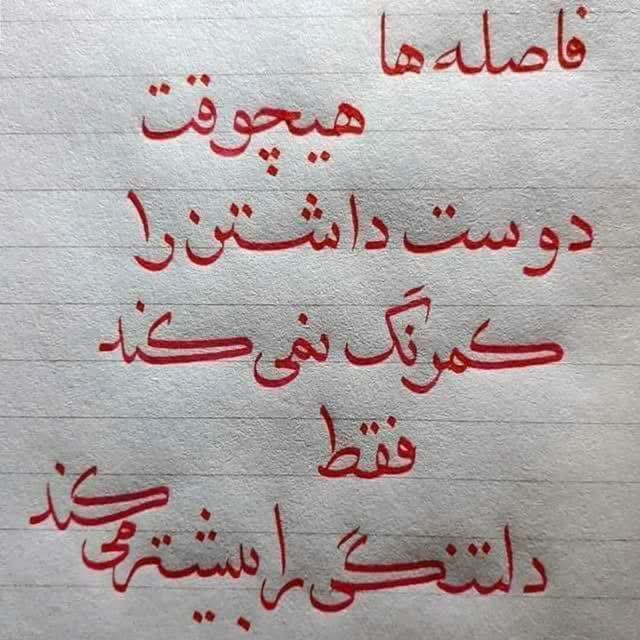 فاصله ها
هیچوقت
دوست داشتن را
کمرنگ نمی کند
فقط
دلتنگی را بیشتر می کند